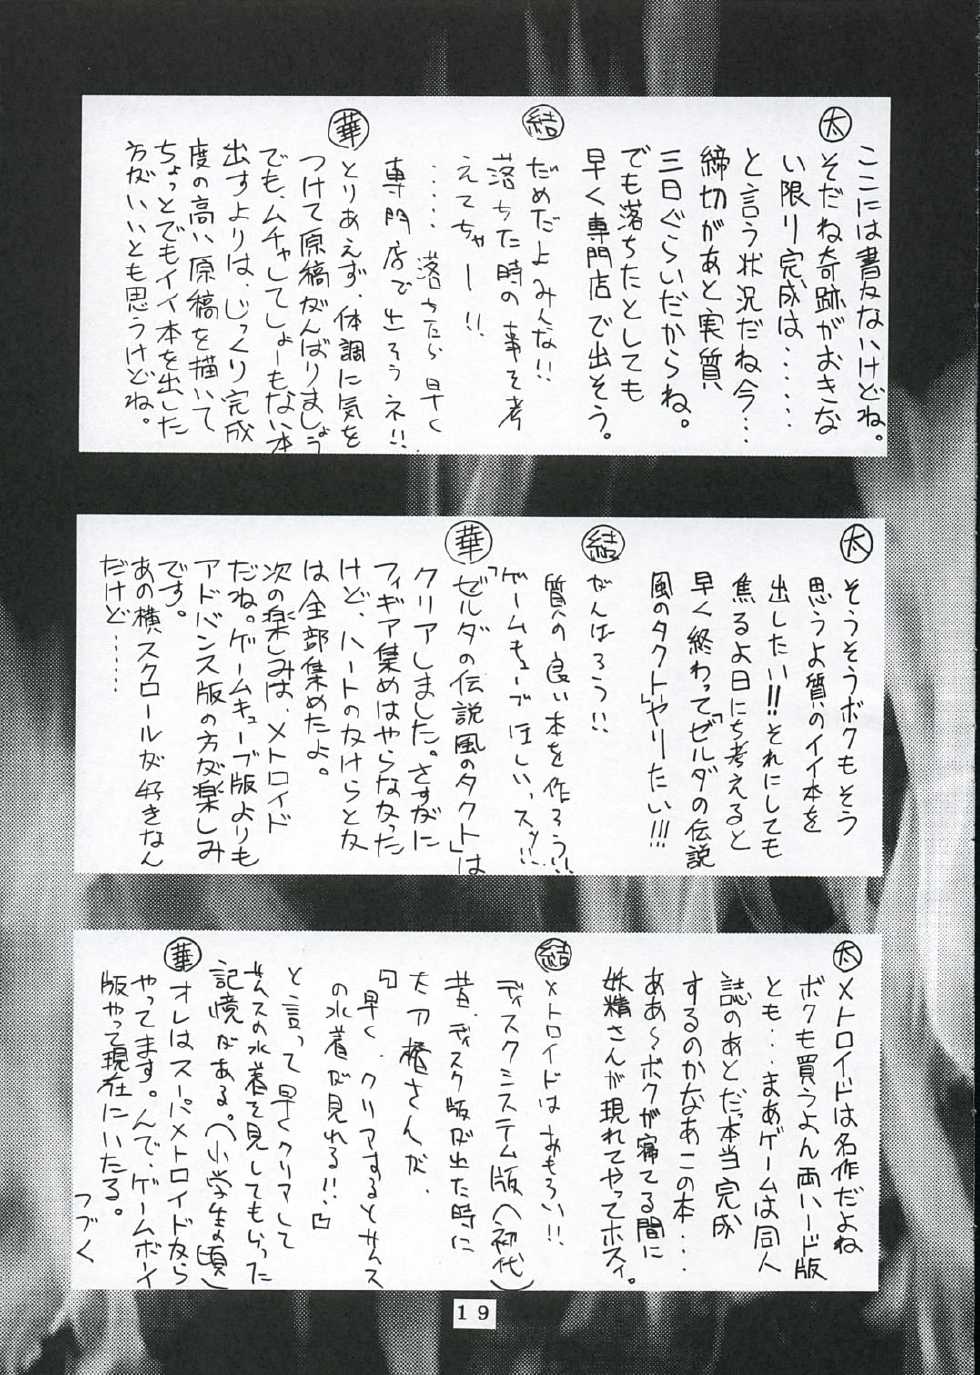 ここには書けないけどね。
太
そだね奇跡がおきな
い限り完成は‥‥‥
と言う状況だね今‥‥
締切があと実質
三日ぐらいだからね。
でも落ちたとしても
早く専門店で出そう。
結
だめだよみんな!!
落ちた時の事を考
えてちゃー!!
‥‥落ちたら早く
専門店で出そうネ!!
華
とりあえず、体調に気を
つけて原稿がんばりましょう
でも、ムチャしてしょーもない本
出すよりは、じっくり完成
度の高い原稿を描いて
ちょっとでもイイ本を出した
方がいいとも思うけどね。
太
そうそうボクもそう
思うよ質のイイ本を
出したい!!それにしても
焦るよ日にち考えると
早く終わって「ゼルダの伝説
風のタクト」やりたい!!!
結
がんばろう!!
質の良い本を作ろう!!
「ゲームキューブほしいっスッ!!
華
「ゼルダの伝説風のタクト」は
クリアしました。さすがに
フィギア集めはやらなかった
けど、ハートのかけらとか
は全部集めたよ。
次の楽しみは、メトロイド
だね。ゲームキューブ版よりも
アドバンス版の方が楽しみ
です。
あの横スクロールが好きなん
だけど‥‥‥
太
メトロイドは名作だよね
ボクも買うよん両ハード版
とも‥まあゲームは同人
誌のあとだっ本当完成
するのかなあこの本‥‥
ああ〜ボクが寝てる間に
妖精さんが現れてやってホスィ。
結
メトロイドはおもろい!!
ディスクシステム版(初代)
昔、ディスク版が出た時に
太刀椿さんが、
「早く、クリアするとサムス
の水着が見れる!!」
と言って早くクリアして
サムスの水着を見してもらった
記憶がある。(小学生の頃)
華
オレはスーパメトロイドから
やってます。んで、ゲームボーイ
版やって現在にいたる。
つづく
19